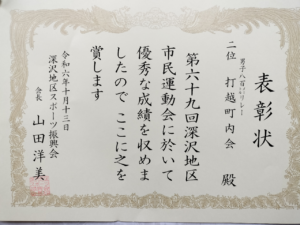 表彰状
男子八百リレー
二位 打越町内会 殿
第六十九回深沢地区
市民運動会に於いて
優秀な成績を収めま
したので ここに之を
賞します
令和六年十月十三日
深沢地区スポーツ振興会
会長 山田洋美